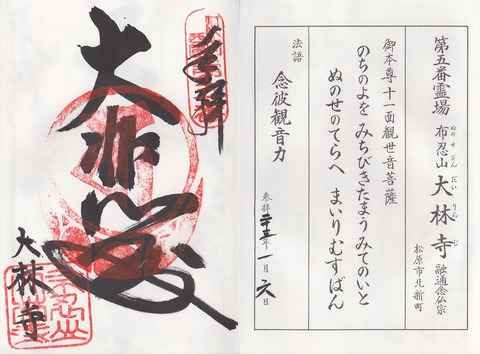 第五番霊場 布忍山 大林寺 融通念仏宗
ぬのせざん だいりんじ
松原市北新町
御本尊 十一面観世音菩薩
のちのよを みちびきたまう みてのいと
ぬのせのてらへ まいりむすばん
法語 念彼観音力
参拝 二十三年 一月 六日
奉拝
大悲殿
大林寺